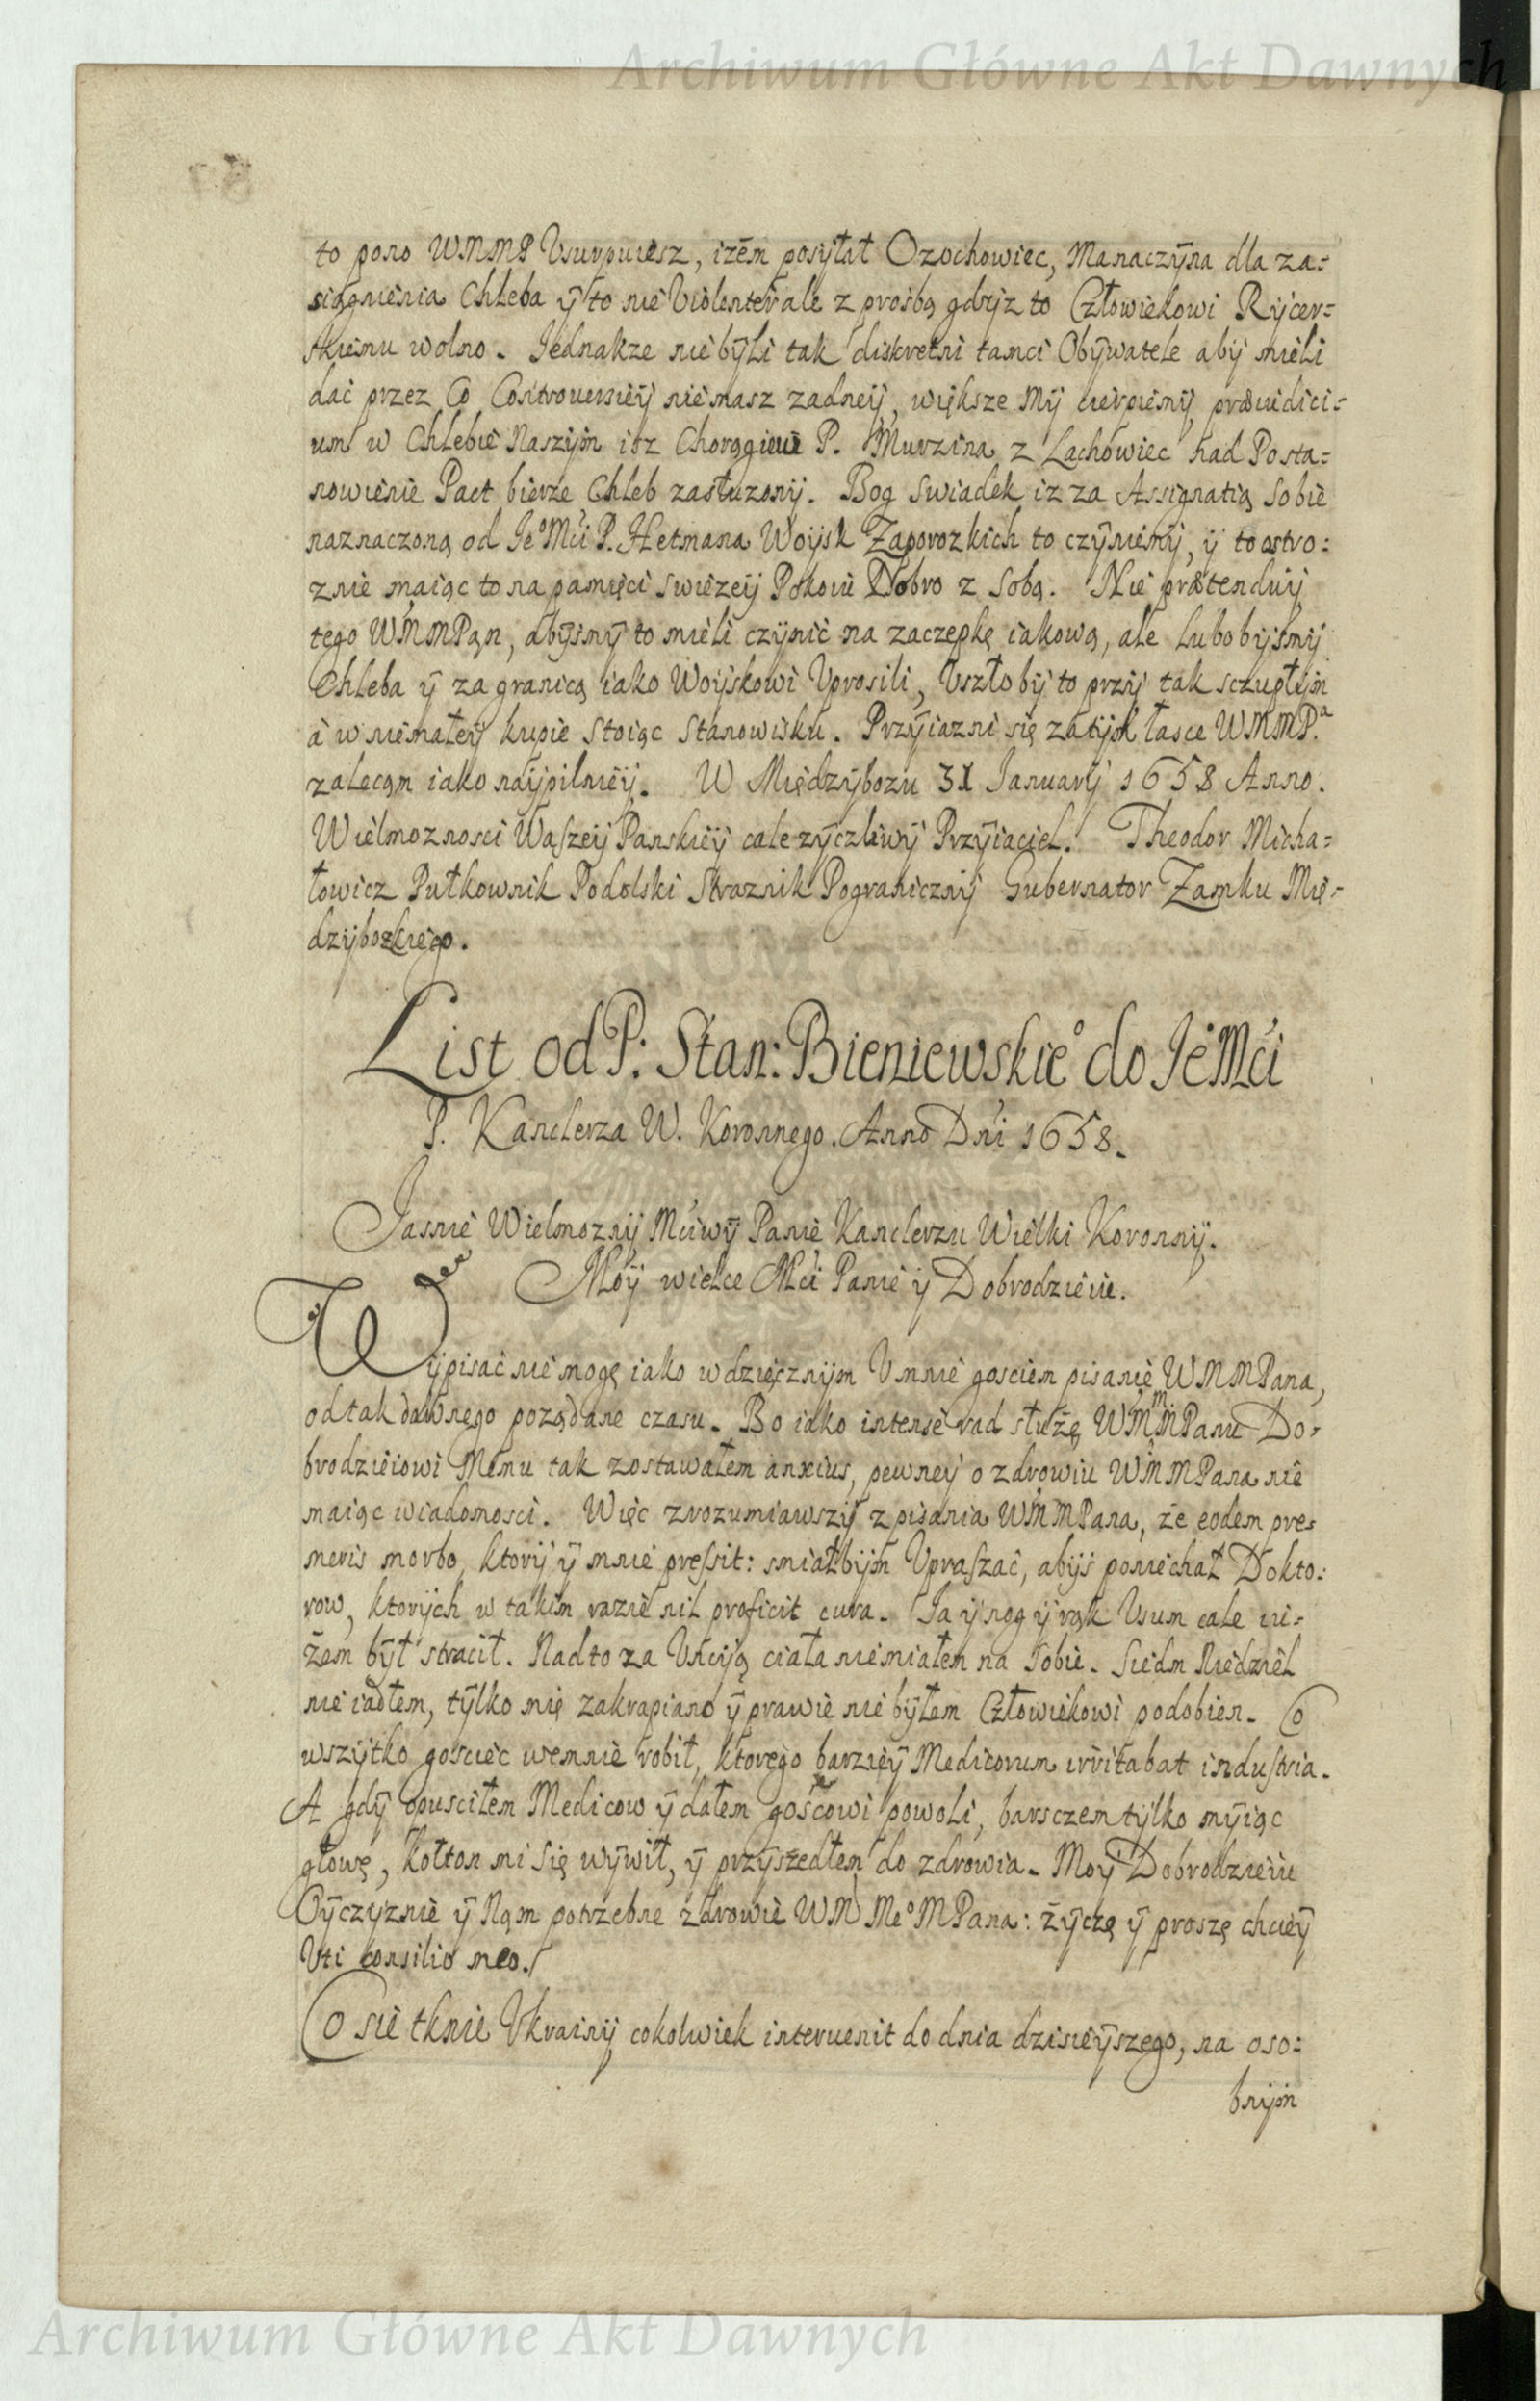 Archiwum Główne Akt Dawnych
to pono WMMP Vsurpuiesz, iżem posyłał Ozochowiec, Manaczÿna dla za=
siągnienia Chleba ÿ to nie Violenter ale z prośbą gdyż to Człowiekowi Rÿcer=
skiemu wolno. Jednakze nie bÿli tak diskretni tamci Obÿwatele abÿ mieli
dać przez Co Controuersiÿ niemasz zadneÿ, większe Mÿ cierpiemÿ præiudici=
um w Chlebie Naszÿm isz Chorągiew P. Murzina z Lachowiec nad Posta=
nowienie Pact bierze Chleb zasłuzonÿ. Bog swiadek iz za Assignatią Sobie
naznaczoną od Jeº Mći P. Hetmana Woÿsk Zaporozkich to czÿniemÿ, ÿ to ostro:
znie maiąc to na pamięci swiezeÿ Pokoiu Dobro z Sobą. Nie prætenduÿ
tego WMMPan, abÿsmÿ to mieli czÿnić na zaczepkę iakową, ale lubobÿsmÿ
Chleba ÿ za granicą iako Woÿskowi Vprosili, Vszłobÿ to przÿ tak sczupłÿm
à w niemałeÿ kupie stoiąc Stanowisku. Przÿiazni się zatÿm łasce WMMP.ª
zalecam iako naÿpilnieÿ. W Międzÿbozu 31 Januarÿ 1658 Anno.
Wielmoznosci Waszeÿ Panskieÿ cale zÿczliwÿ Przÿiaciel. Theodor Micha=
łowicz Pułkownik Podolski Straznik Pogranicznÿ Gubernator Zamku Mię=
dzÿbozkiego.
List od P: Stan: Bieniewskieº do Jeº Mći
P. Kanclerza W. Koronnego. Anno Dńi 1658.
Jasnie Wielmoznÿ Mciwÿ Panie Kanclerzu Wielki Koronnÿ.
Moÿ wielce Mći Panie ÿ Dobrodzieiu.
Wÿpisać nie mogę iako wdzięcznÿm V mnie gosciem pisanie WMMPana,
od tak dawnego poządane czasu. Bo iako intense rad służę WMmMPanu Do=
brodzieiowi Memu tak zostawałem anxius, pewneÿ o zdrowiu WMMPana nie
maiąc wiadomosci. Więc zrozumiawszÿ z pisania WMMPana, że eodem pre=
meris morbo, ktorÿ ÿ mnie pressit: smiałbÿm Vpraszać, abÿś poniechał Dokto:
row, ktorÿch w takim razie nil proficit cura. Ja ÿ nog ÿ rąk Vsum cale iu=
żem bÿł stracił. Nadto za Vncÿą ciała niemiałem na Sobie. Siedm Niedziel
nie iadłem, tÿlko mię zakrapiano ÿ prawie nie bÿłem Człowiekowi podobien. Co
wszÿtko gosciec wemnie robił, ktorego barzieÿ Medicorum irritabat industria.
A gdÿ opusciłem Medicow ÿ dałem gośćcowi powoli, barsczem tÿlko mÿiąc
głowę, kołton mi Się wÿwił, ÿ przÿszedłem do zdrowia. Moÿ Dobrodzieiu
Oÿczÿznie ÿ Nam potrzebne zdrowie WM MeºMPana: żÿczę ÿ proszę chcieÿ
Vti consilio meo.
Co sie tknie Vkrainÿ cokolwiek interuenit do dnia dzisieÿszego, na oso:
bnÿm
Archiwum Główne Akt Dawnych